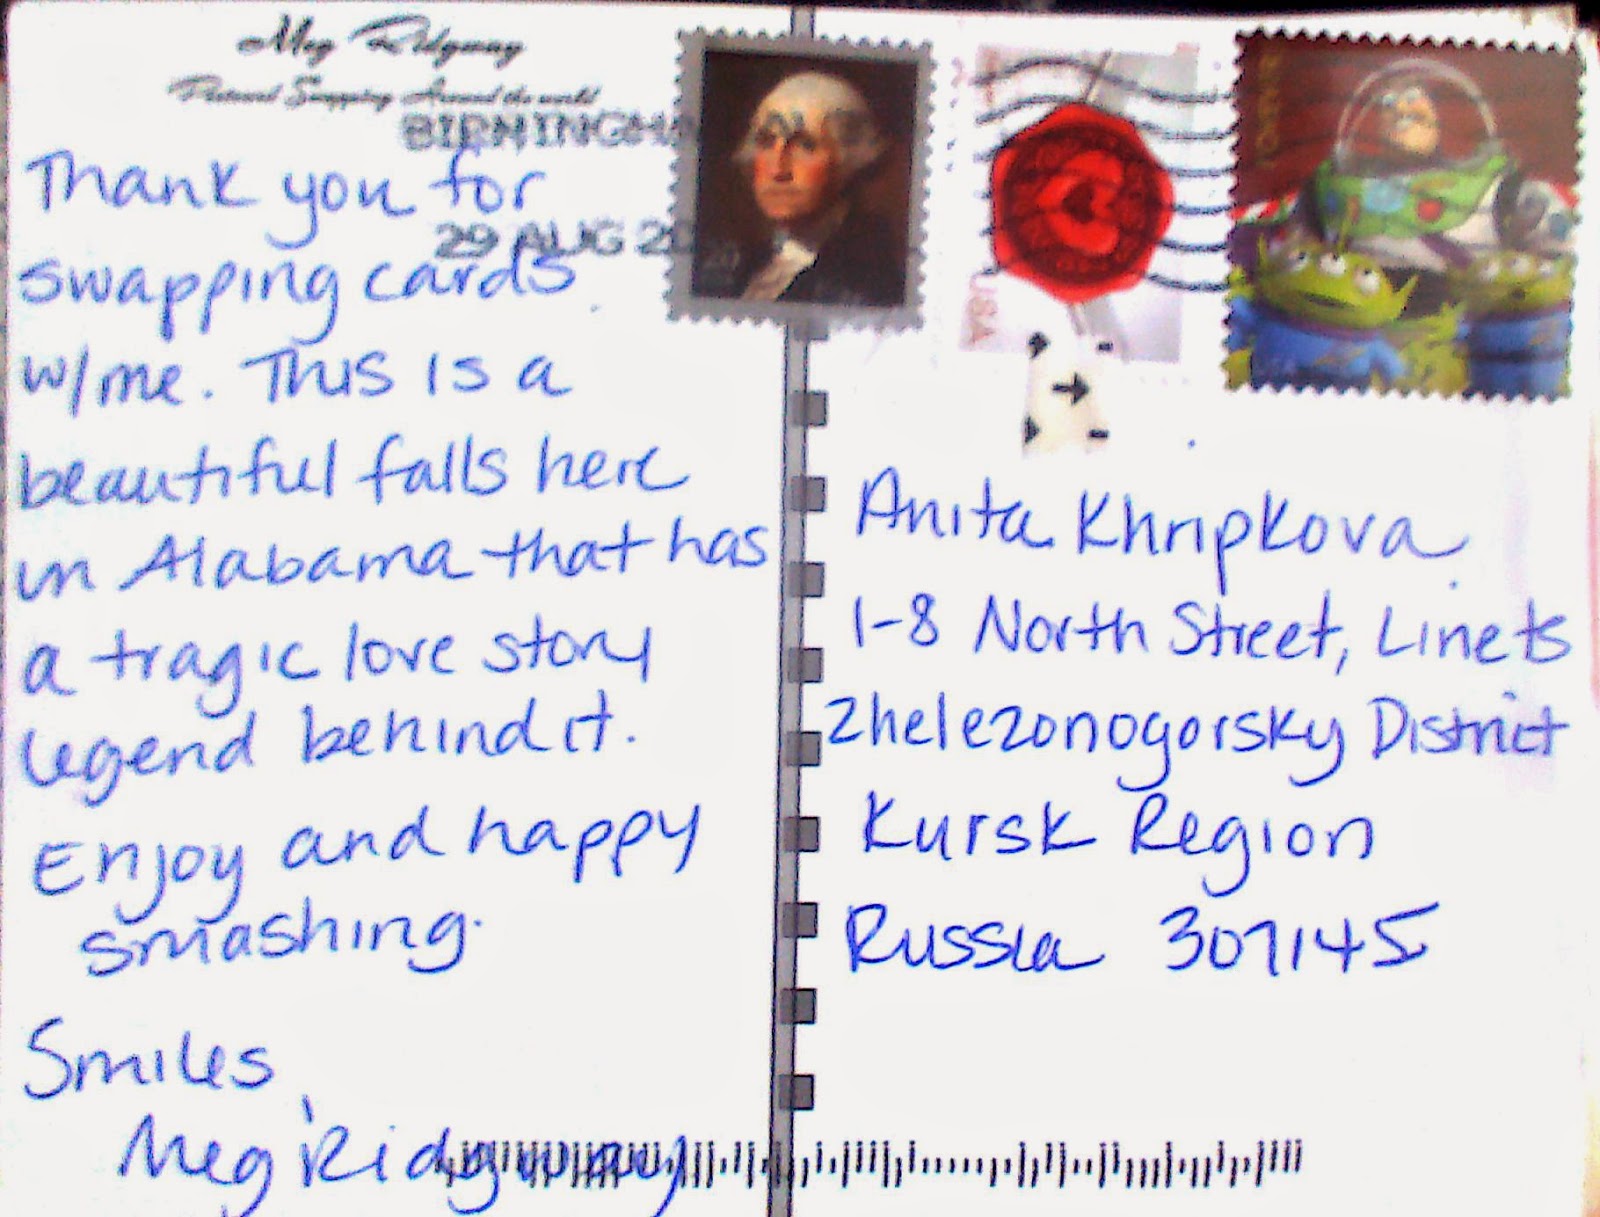 Meg Ridgway
Postcard Swapping Around the world
BIRMINGHA
29 AUG 20
FOREVER
USA
Thank you for
swapping cards
w/me. This is a
beautiful falls here
in Alabama that has
a tragic love story
legend behind it.
Enjoy and happy
smashing.
Smiles,
Meg Ridgway
Anita Khripkova
1-8 North Street, Linets
Zhelezonogorsky District
Kursk Region
Russia 307145